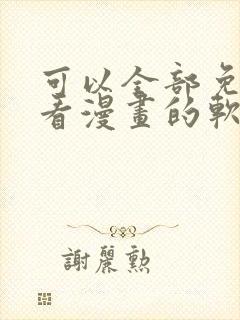 可以全部免
看漫畫的軟
謝麗勲